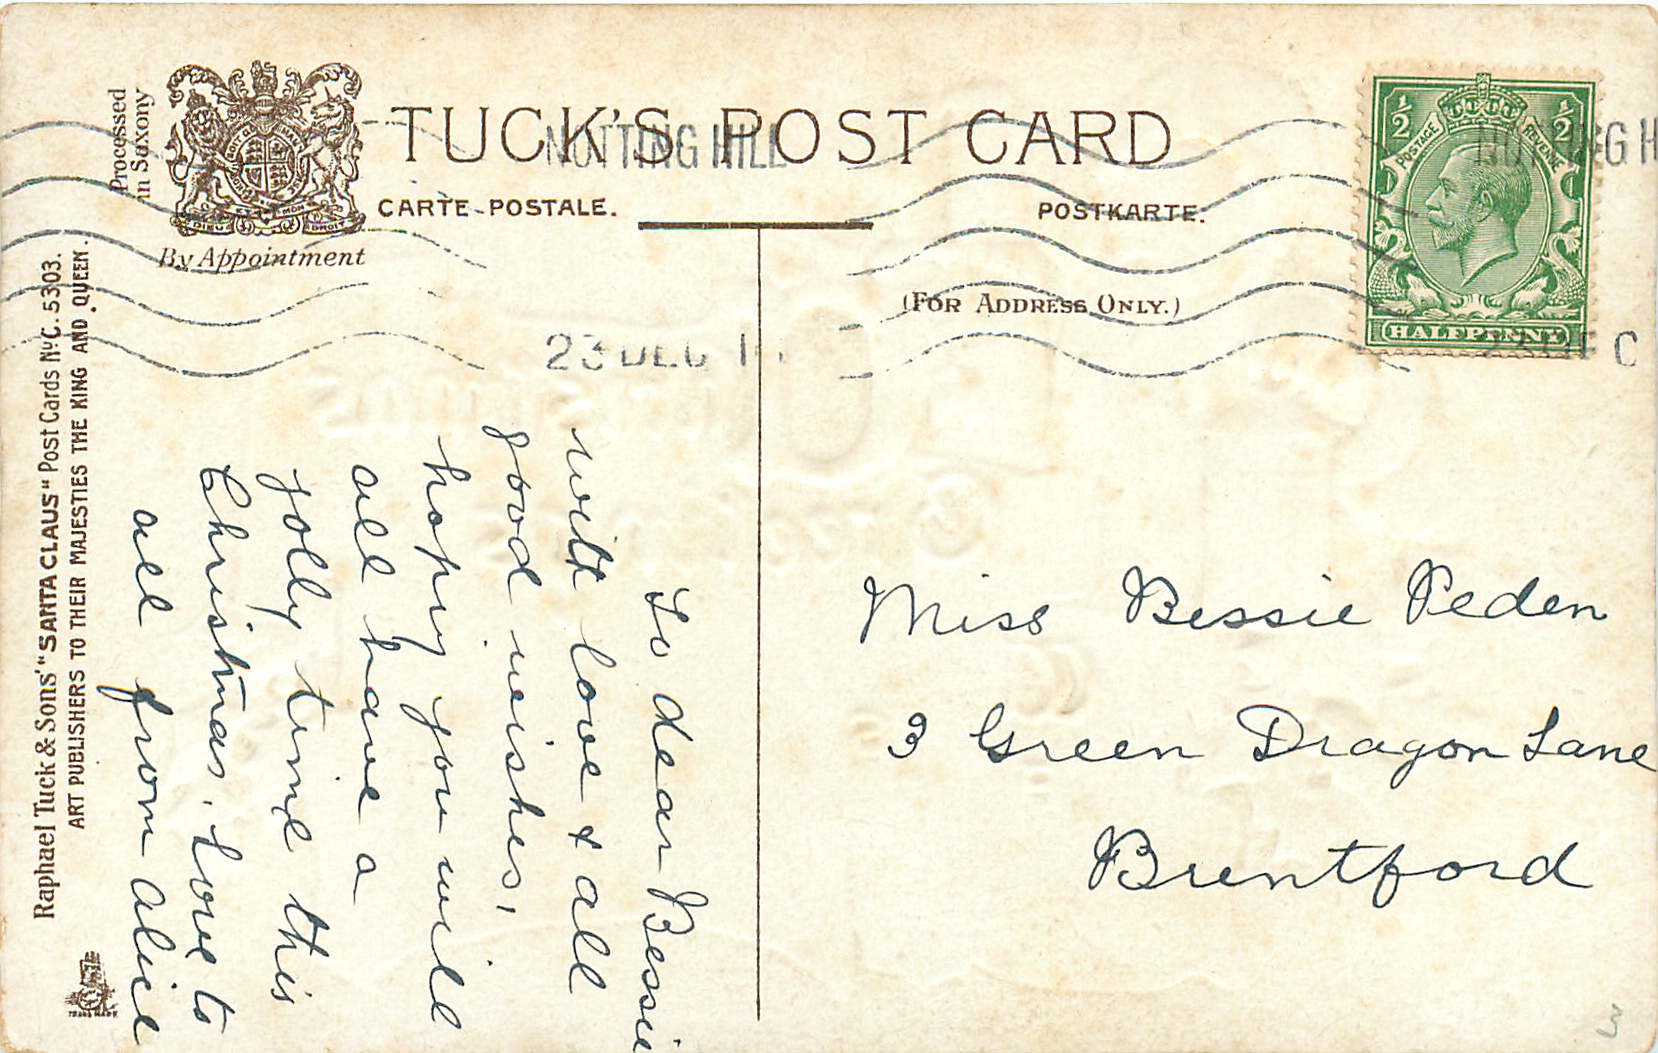 Processed
in Saxony
TUCK'S POST CARD
CARTE-POSTALE.
POSTKARTE.
By Appointment
(FOR ADDRESS ONLY.)
DIEU ET MON DROIT
NOTTING HILL
23 DEC 1
½ ½
POSTAGE REVENUE
HALFPENNY
NOTTING H
23 DEC
Raphael Tuck & Sons' "SANTA CLAUS" Post Cards No. C. 5303.
ART PUBLISHERS TO THEIR MAJESTIES THE KING AND QUEEN.
TRADE MARK
To dear Bessie
with love & all
good wishes,
hopy you will
all have a
jolly time this
Christmas. Love to
all from Alice
Miss Bessie Peden
3 Green Dragon Lane
Brentford
3